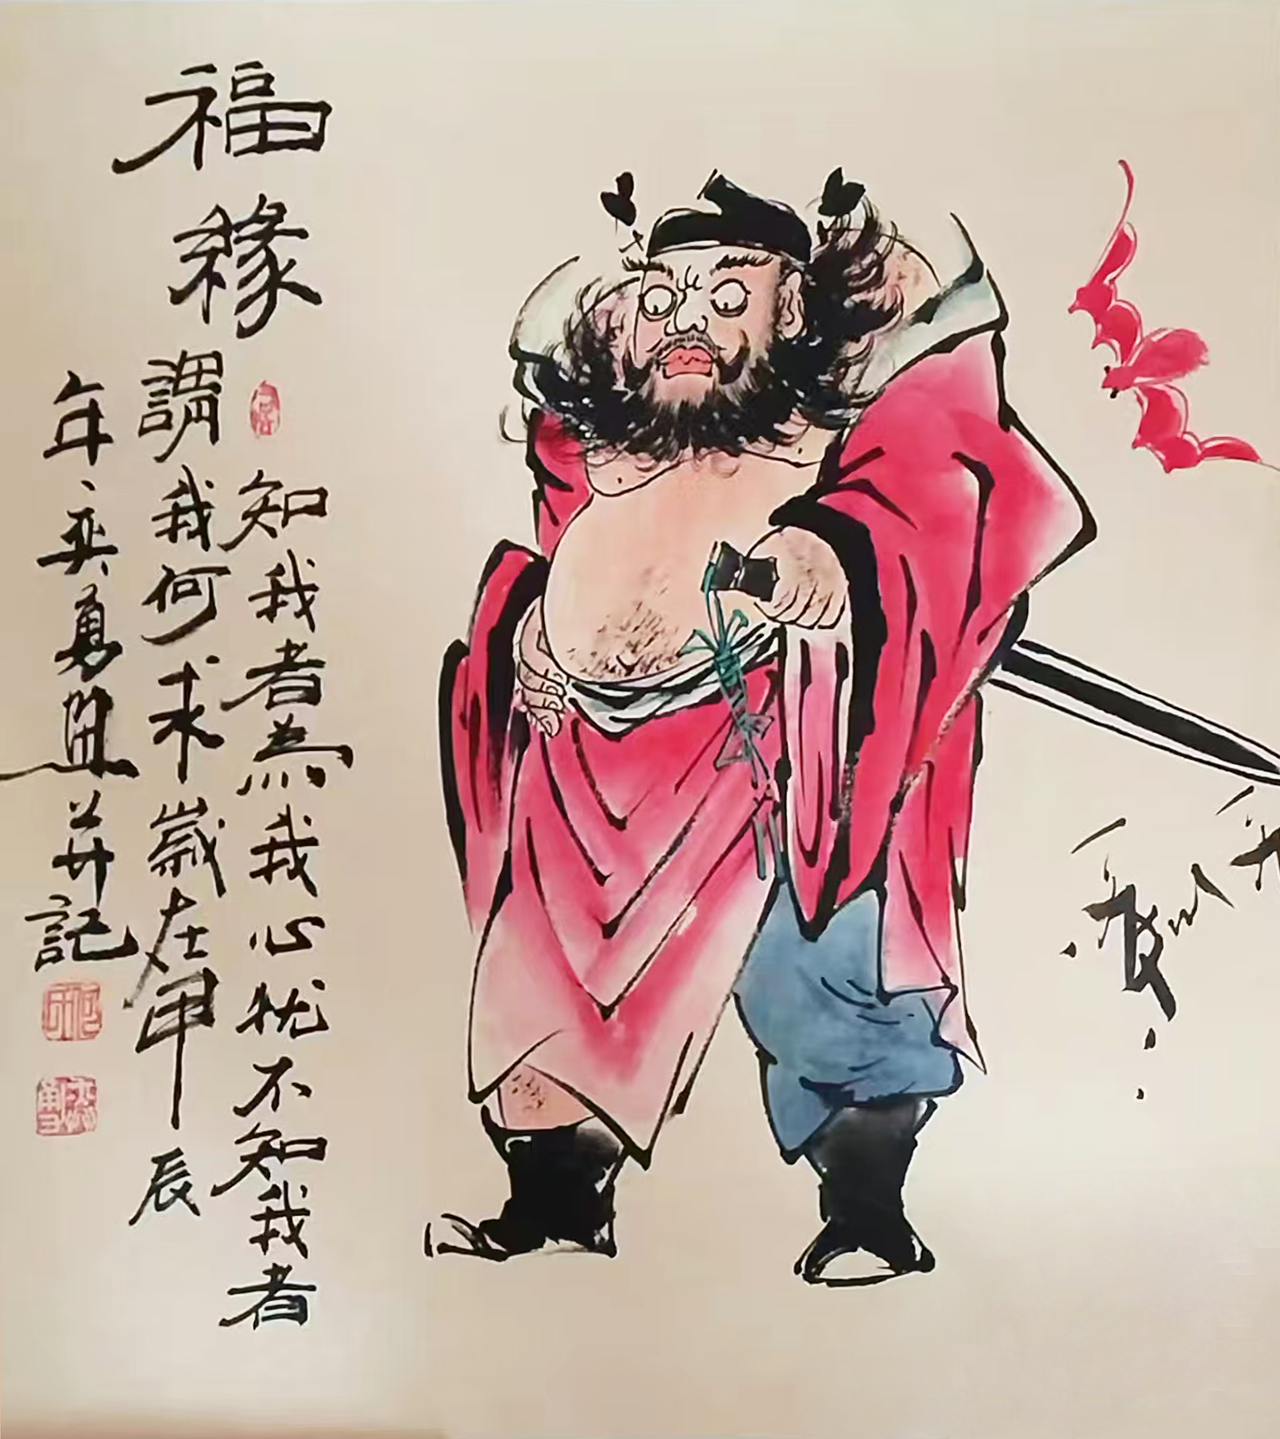 福緣
知我者為我心忧不知我者
謂我何求歲在甲辰
年奕勇并記